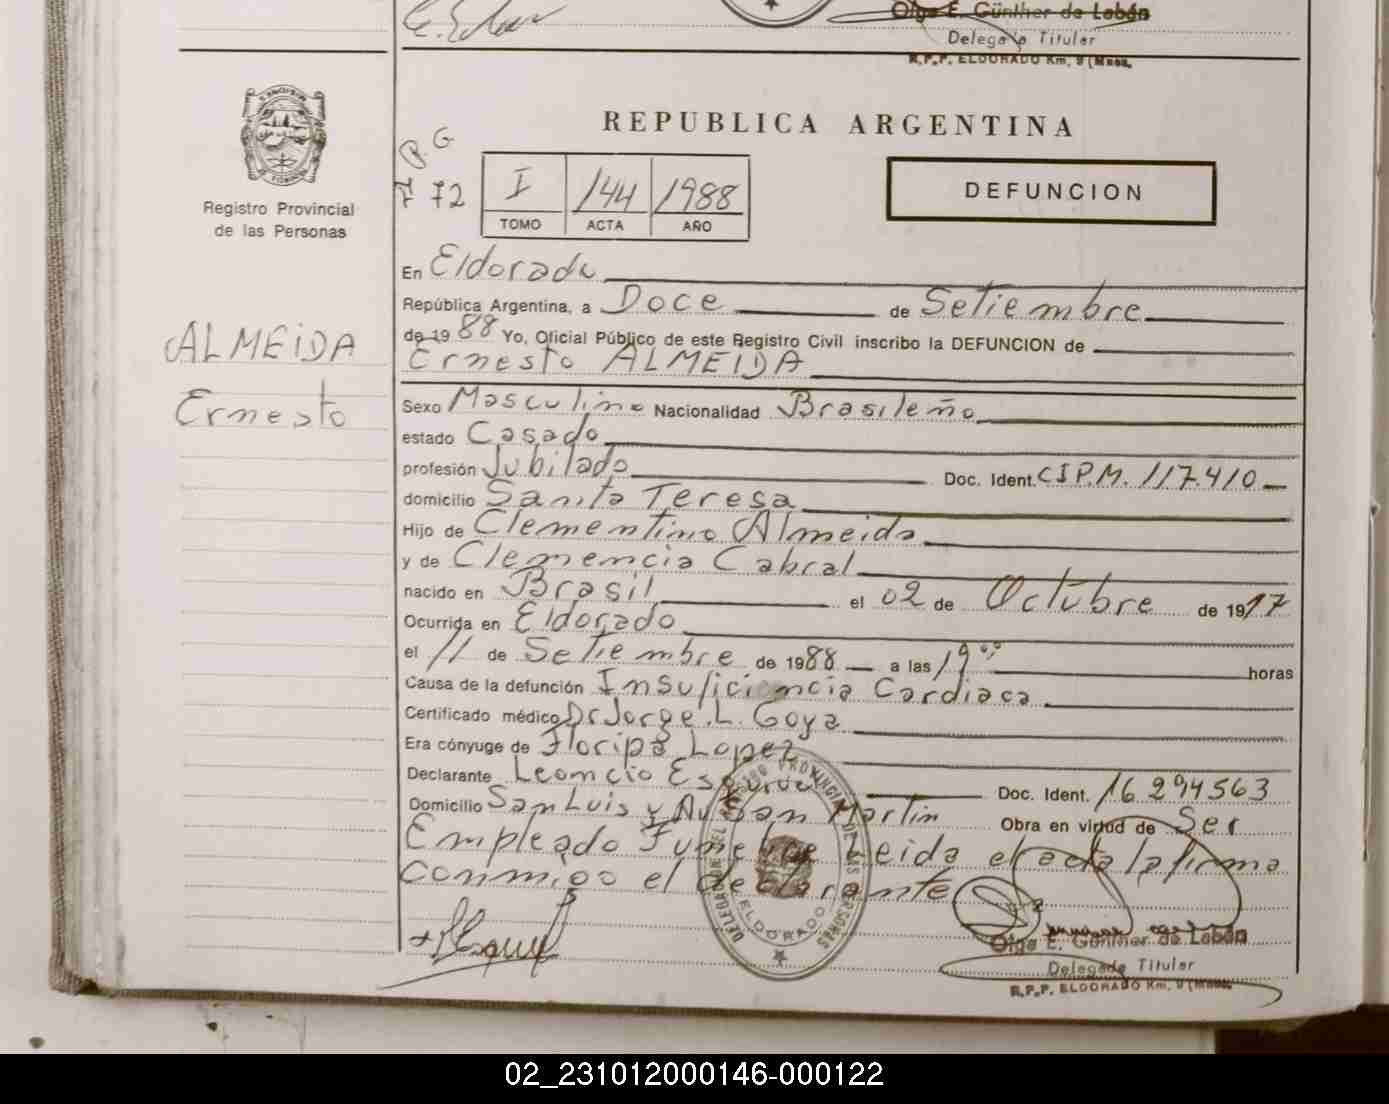 Olga E. Günther de Labán
Delegada Titular
R.P.P. ELDORADO Km. 9 (Mnes.
Registro Provincial
de las Personas
REPUBLICA ARGENTINA
P. G
F 72
I 144 1988
TOMO ACTA AÑO
DEFUNCION
En Eldorado
República Argentina, a Doce de Setiembre
de 1988 Yo, Oficial Público de este Registro Civil inscribo la DEFUNCION de
Ernesto ALMEIDA
ALMEIDA
Ernesto
Sexo Masculino Nacionalidad Brasileño
estado Casado
profesión Jubilado Doc. Ident. CIP.M. 117.410
domicilio Santa Teresa
Hijo de Clementino Almeida
y de Clemencia Cabral
nacido en Brasil el 02 de Octubre de 1917
Ocurrida en Eldorado
el 11 de Setiembre de 1988 a las 19,00 horas
Causa de la defunción Insuficiencia Cardiaca
Certificado médico Dr Jorge. L. Goya
Era cónyuge de Floripa Lopez
Declarante Leoncio Doc. Ident. 16.294563
Domicilio San Luis y Av San Martin Obra en virtud de Ser
Empleado Funebre Leida el acta la firma
conmigo el declarante
DELEGACION DEL REGISTRO PROVINCIAL DE LAS PERSONAS
ELDORADO
Olga E. Günther de Labán
Delegada Titular
R.P.P. ELDORADO Km. 9 (Mnes.
02_231012000146-000122